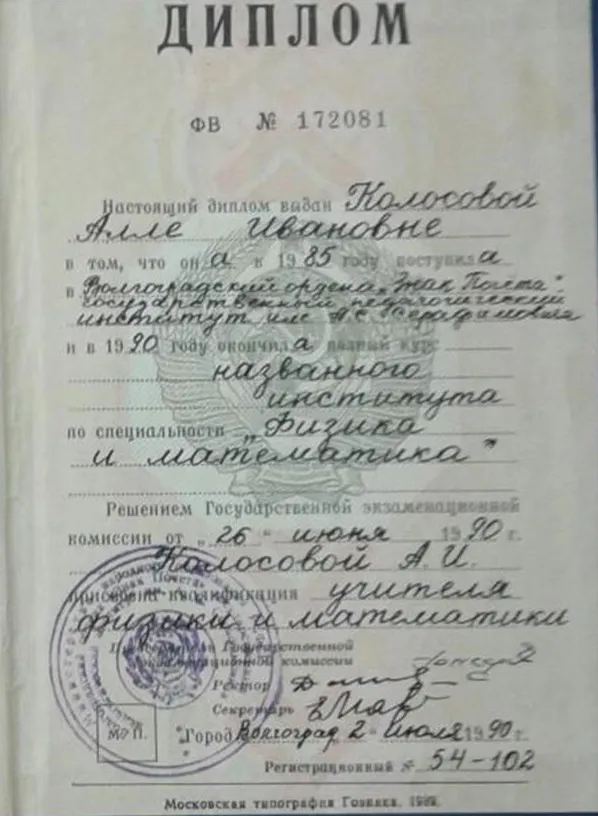 ДИПЛОМ
ФВ № 172081
Настоящий диплом выдан Колосовой
Алле Ивановне
в том, что она в 1985 году поступила
в Волгоградский ордена „Знак Почета"
государственный педагогический
институт им. А.С. Серафимовича
и в 1990 году окончила полный курс
названного
института
по специальности „Физика
и математика"
Решением Государственной экзаменационной
комиссии от „26" июня 1990 г.
Колосовой А.И.
присвоена квалификация учителя
физики и математики
Председатель Государственной
экзаменационной комиссии
Ректор
Секретарь
М. П.
Город Волгоград 2 июля 1990 г.
Регистрационный № 54-102
Московская типография Гознака. 1989.